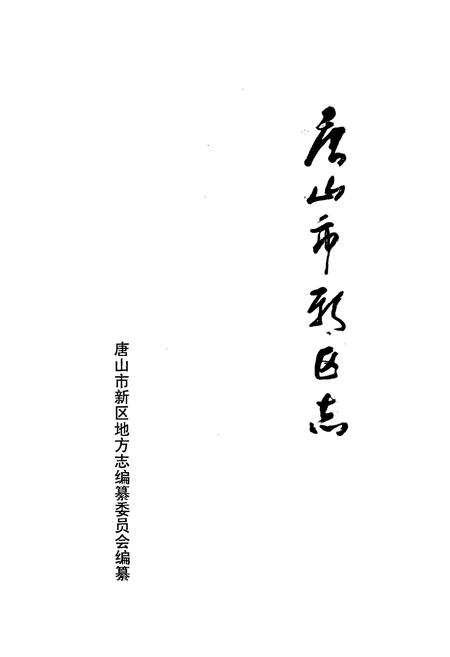 唐山市新区志
唐山市新区地方志编纂委员会编纂